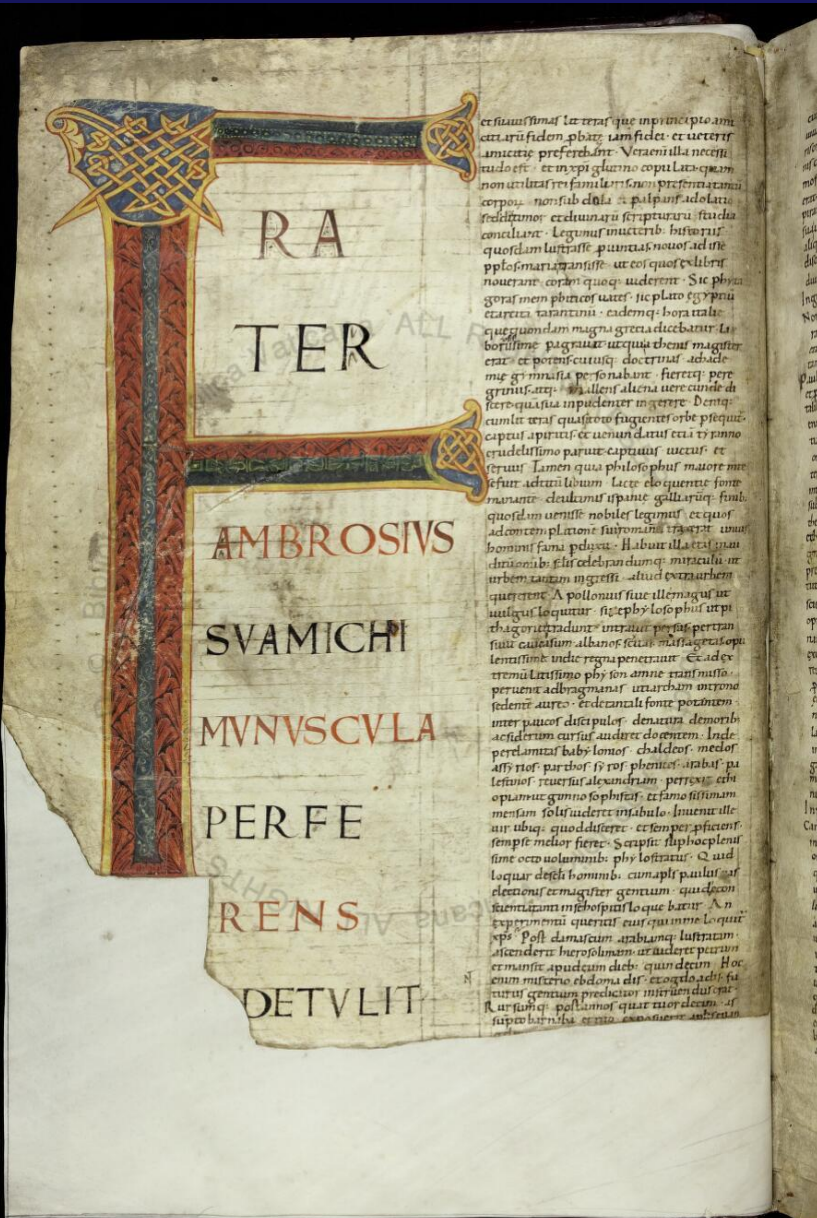 F
RA
TER
AMBROSIVS
SVAMICHI
MVNVSCVLA
PERFE
RENS
DETVLIT
et suauissimas litteras que inprincipio ami
citiarū fidem ꝓbatę iam fidei · et ueteris
amicitię preferebant · Vera enī illa necessi
tudo est · et inxp̄i glutino copulata · quam
non utilitas rei familiaris · non presentia tantū
corporꝝ · non subdola & palpans adolatio
sed dī timor · et diuinarū scripturarū studia
conciliant · Legimus inueterib: historiis
quosdam lustrasse ꝓuintias · nouos adisse
pplos · maria transisse · ut eos quos exlibris
nouerant · coram quoq: uiderent · Sic phyta
goras memphiticos uates · sic plato egyptū
et arcita tarantinū · eademq: hora italie
que quondam magna grecia dicebatur · La
boriosissime pagrauit · ut qui athenis magister
erat · et potens · cuiusq: doctrinas achade
mię gymnasia personabant · fieretq: pere
grinus · atq: mallens aliena uerecunde di
scere · quā sua inpudenter ingerere · Deniq:
cum litteras quasi toto fugientes orbe psequit
captus apiratis · et uenundatus · etiā tyranno
crudelissimo paruit · captiuus · uictus · et
seruus · Tamen quia philosophus maiore
lacte eloquentie fonte
manante · deultimis ispanie galliarūq: finib:
quosdam uenisse nobiles legimus · et quos
adcontemplationē sui roma
hominis fama pduxit · Habuit illa etas inau
ditū omnib: sclis celebrandumq: miraculū · ut
urbem tantam ingressi · aliud extra urbem
quererent · Apollonius siue ille magus ut
uulgus loquitur · siue phylosophus ut pi
thagorici tradunt · intrauit persas · pertran
siuit caucasum · albanos · scitas · massagetas · opu
lentissime indie regna penetrauit · Et ad ex
tremū latissimo physon amne transmisso ·
peruenit adbragmanas · ut iarcham introno
sedentē aureo · et detantali fonte potantem ·
inter paucos discipulos · denatura demorib:
acsiderum cursu · audiret docentem · Inde
perelamitas · babylonios · chaldeos · medos
assyrios · parthos · syros · phenices · arabas · pa
lestinos · reuersus alexandriam · perrexit ethi
opiam · ut gimnosophistas · et famosissimam
mensam solis uideret insabulo · Inuenit ille
uir ubiq: quod disceret · et semper ꝓficiens ·
semp se melior fieret · Scripsit sup hoc plenis
sime octo uoluminib: phylostratus · Quid
loquar deseclī hominib: cum apls paulus uas
electionis et magister gentium · qui decon
scientia tanti inse hospitis loquebatur · An
experimentū queritis eius qui inme loquit
xp̄s · Post damascum arabiamq: lustratam ·
ascenderit hierosolimam · ut uideret petrum
et mansit apud eum dieb: quindecim · Hoc
enim misterio ebdomadis · et ogdoadis · fu
turus gentium predicator instruendus erat ·
Rursumq: post annos quattuordecim · as
supto barnaba et tito exposuerit